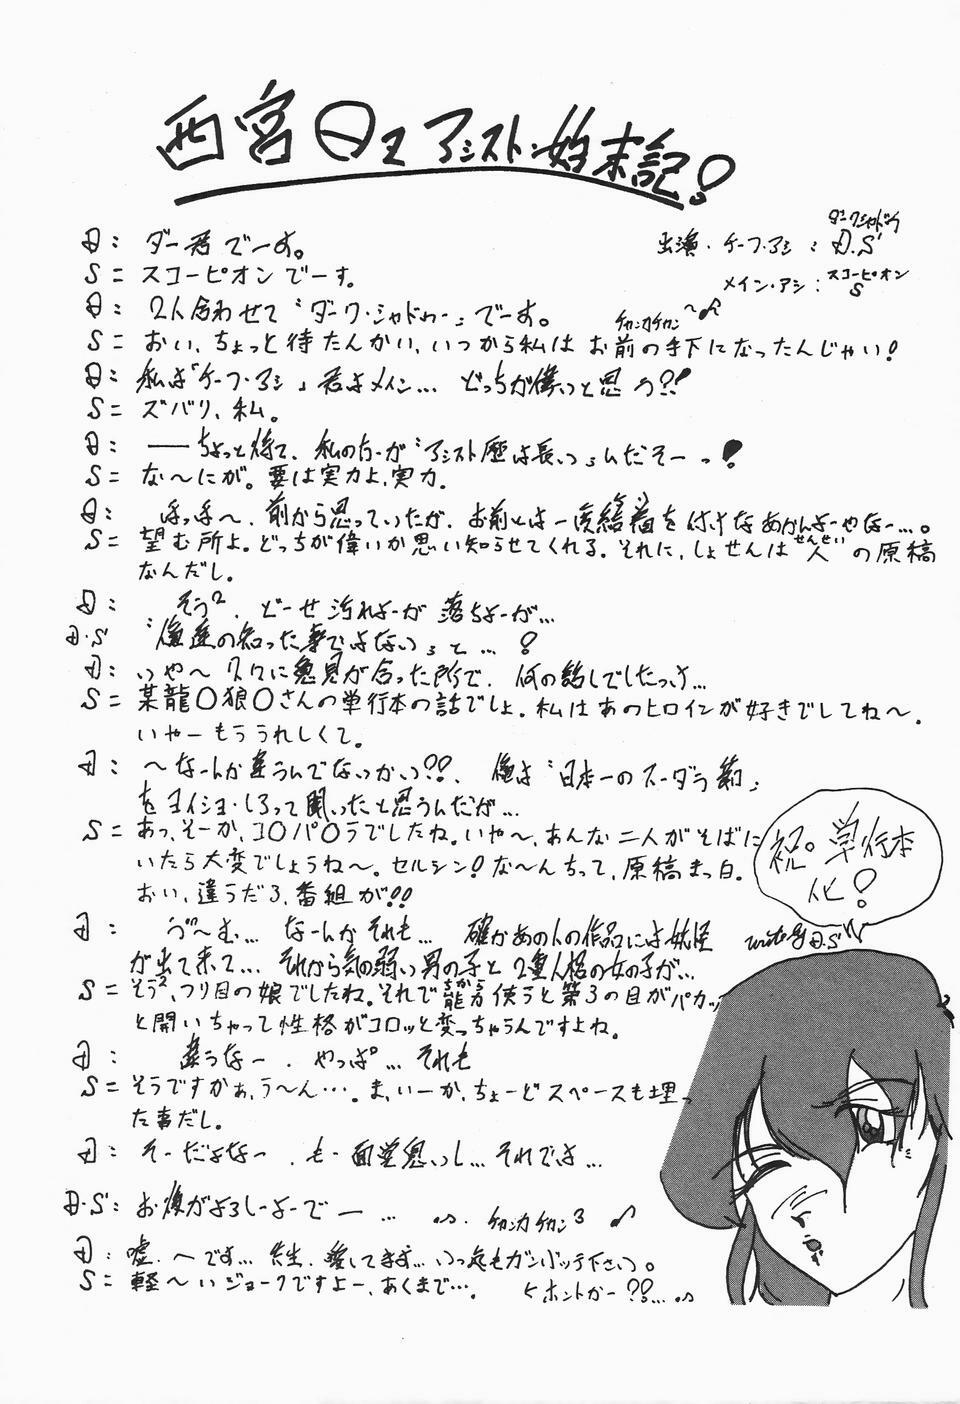 西宮日エアシスト始末記!
ダークシャドウ
出演・チーフ・アシ:D.S
スコーピオン
メイン・アシ:S
D:ダー君でーす。
S=スコーピオンでーす。
D:2人合わせて〝ダーク・シャドゥー〟でーす。
チャンカチャン〜♪
S=おい、ちょっと待たんかい、いつから私はお前の手下になったんじゃい!
D:私は「チーフ・アシ」君はメイン…どっちが偉いっと思う?!
S=ズバリ、私。
D:――ちょっと待て、私の方が〝アシスト歴は長いっ〟んだぞーっ!
S=な〜にが。要は実力よ、実力。
D:ほっほ〜、前から思っていたが、お前とは一度結着を付けなあかんよーやなー…。
S=望む所よ。どっちが偉いか思い知らせてくれる。それに、しょせんは人の原稿
せんせい
なんだし。
D:そう²、どーせ汚れよーが落ちよーが…
D・S〝俺達の知った事ではない〟と…!
D:いや〜久々に意見が合った所で、何の話しでしたっけ…
S=某龍〇狼〇さんの単行本の話でしょ。私はあのヒロインが好きでしてね〜。
いやーもううれしくて。
D:〜なーんか違うんでないかい??、俺は〝日本一のスーダラ節〟
をヨイショ・しろって聞いったと思うんだが…
S=あっ、そーか、コ〇パ〇ラでしたね。いや〜、あんな二人がそばに
いたら大変でしょうね〜。セルシン!な〜んちって、原稿まっ白。
おい、違うだろ、番組が!!
D:う〜む…なーんかそれも…確かあの人の作品には妖怪
が出て来て…それから気の弱い男の子と2重人格の女の子が…
S=そう²、つり目の娘でしたね。それで能力使うと第3の目がパカッ
ちから
と開いちゃって性格がコロッと変っちゃうんですよね。
D:違うなー、やっぱ…それも
S=そうですかぁ、う〜ん…。ま、いーか、ちょーどスペースも埋っ
た事だし。
D:そーだよなー、も・面堂思いし…それでは…
D・S:お後がよろしーよーでー…チャンカチャン³♪
D:嘘、〜です…先生、愛してます…いつ迄もガンバッテ下さい。
S=軽〜いジョークですよー、あくまで…。
ホントかー??…
祝。単行本
化!
write by D.S